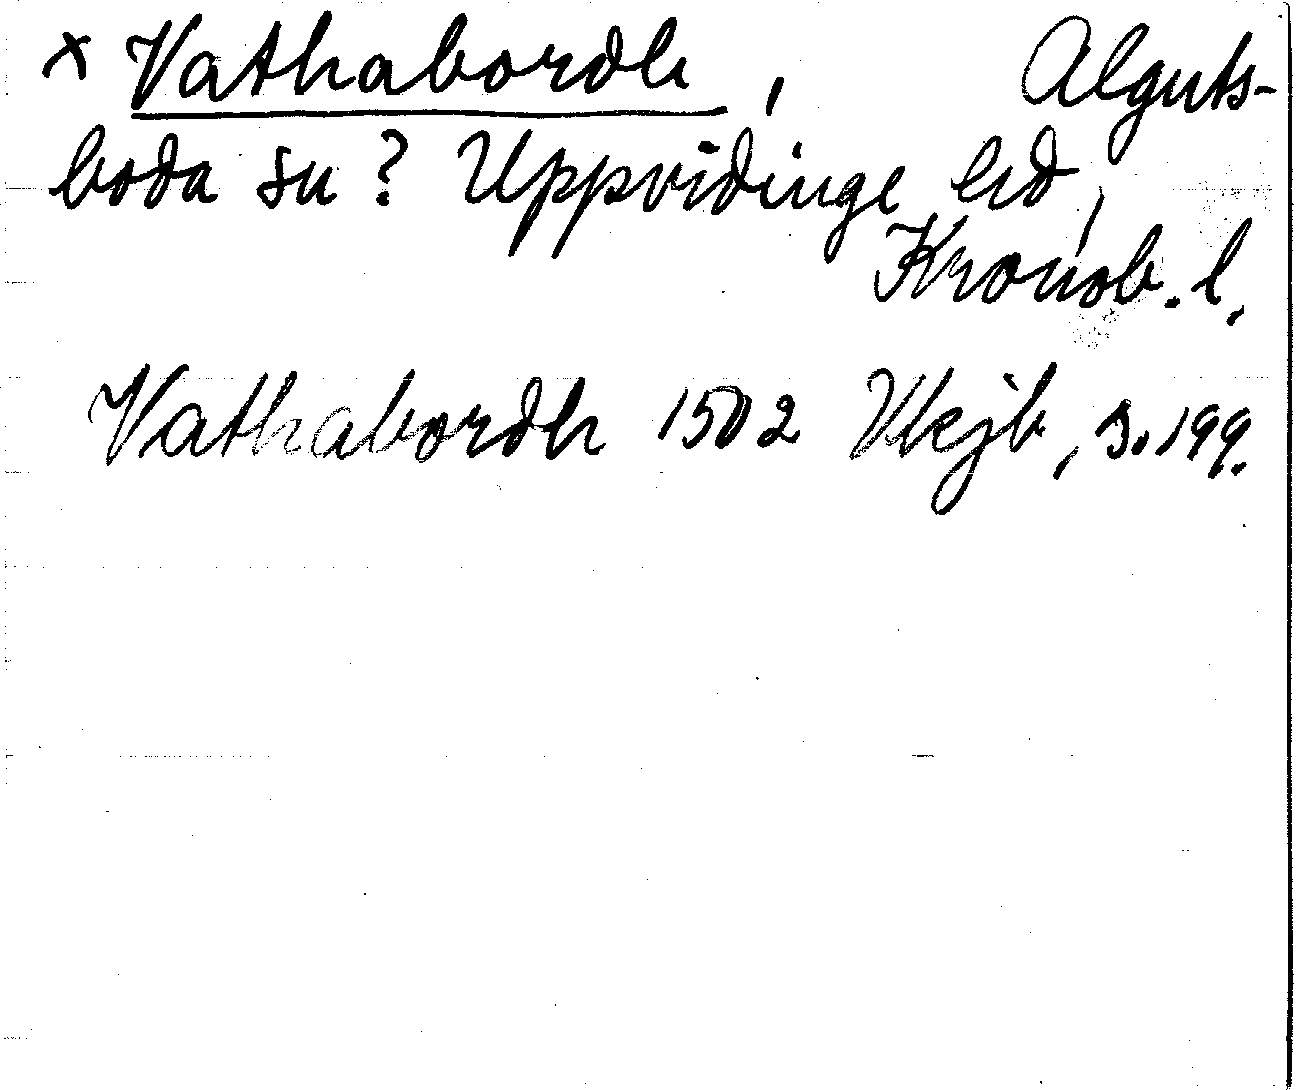 x Vathabordh, Alguts-
boda sn? Uppvidinge hd,
Kronob. l.
Vathabordh 1502 Vkjb, s. 199.